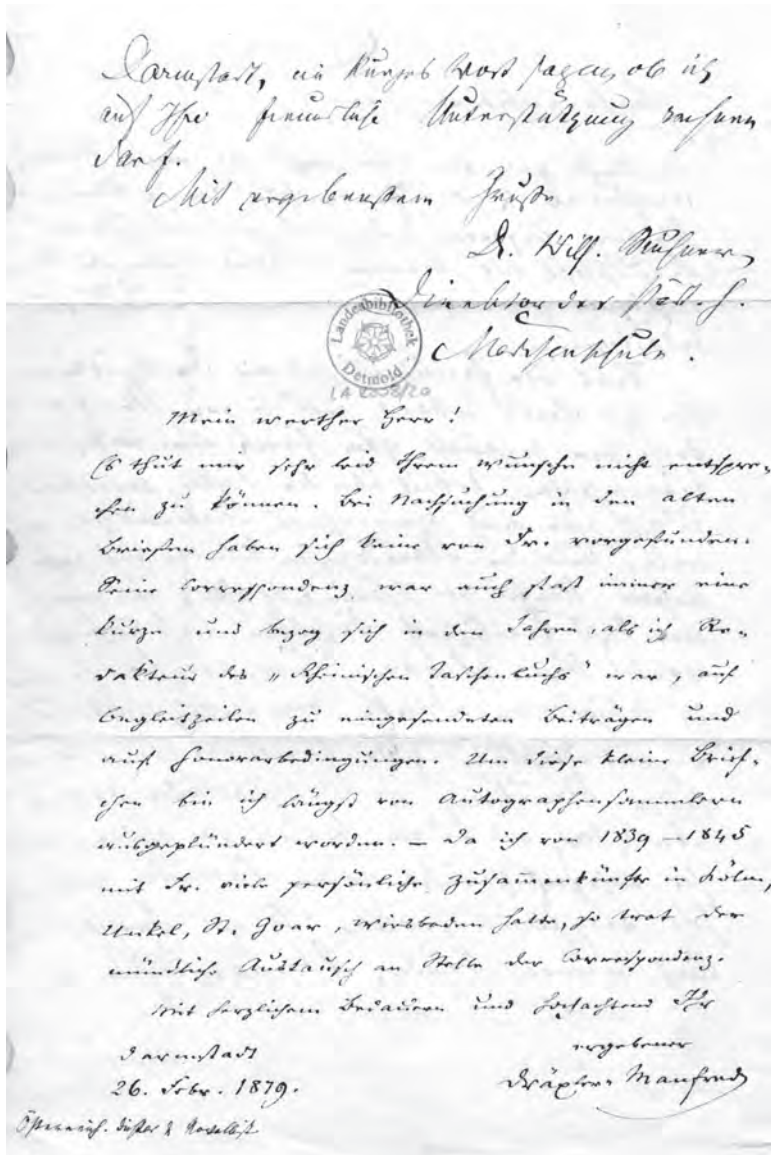 Darmstadt, ein kurzes Wort sagen, ob ich
auf Ihre freundliche Unterstützung rechnen
darf.
Mit ergebenstem Gruße
Dr. Wilh. Buchner,
Direktor der städt. h.
Mädchenschule.
Landesbibliothek
Detmold
Mein werther Herr!
Es thut mir sehr leid Ihrem Wunsche nicht entspre-
chen zu können. Bei Nachsuchung in den alten
Briefen haben sich keine von Fr. vorgefunden.
Seine Correspondenz war auch stäts immer eine
kurze und bezog sich in den Jahren, als ich Re-
dakteur des „Rheinischen Taschenbuchs" war, auf
Begleitzeilen zu eingesendeten Beiträgen und
auf Honorarbedingungen. Um diese kleine Brief-
chen bin ich längst von Autographensammlern
ausgeplündert worden. – Da ich von 1839 – 1845
mit Fr. viele persönliche Zusammenkünfte in Köln,
Unkel, St. Goar, Wiesbaden hatte, so trat der
mündliche Austausch an Stelle der Correspondenz.
Mit herzlichem Bedauern und hochachtend Ihr
Darmstadt
ergebener
26. Febr. 1879.
Dräxler-Manfred
Österreich. Dichter & Novellist